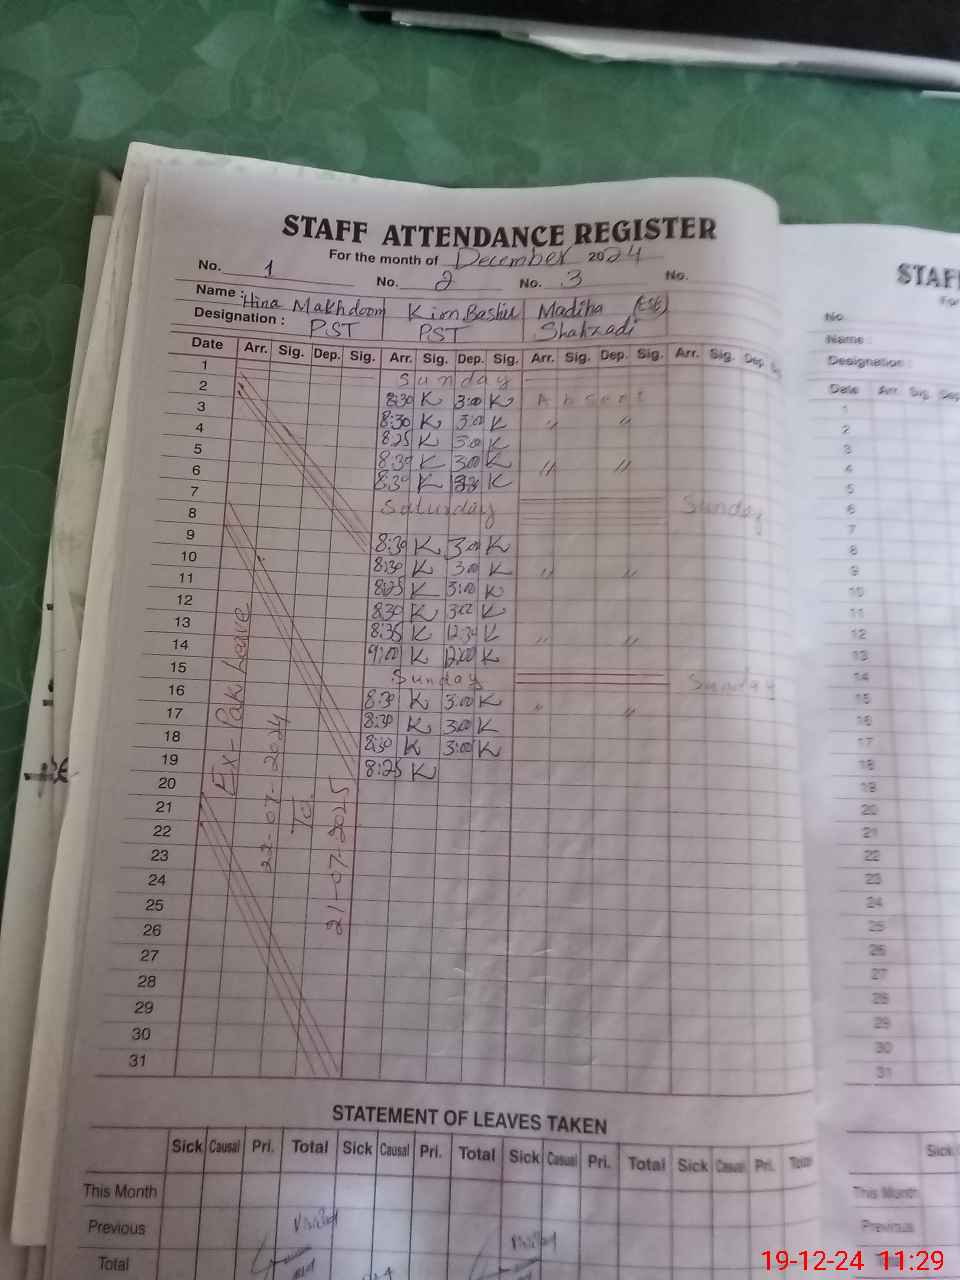 STAFF ATTENDANCE REGISTER
For the month of December 2024
No. 1 No. 2 No. 3 No.
Name : Hina Makhdoom Kim Bashir Madiha (ESE)
Designation : PST PST Shahzadi
Date Arr. Sig. Dep. Sig. Arr. Sig. Dep. Sig. Arr. Sig. Dep. Sig. Arr. Sig. Dep
1 Sunday
2 8:30 K 3:00 K Absent
3 8:30 K 3:00 K " "
4 8:25 K 3:00 K
5 8:30 K 3:00 K " "
6 8:30 K K
7 Saturday
8 Sunday
9 8:30 K 3:00 K
10 8:30 K 3:00 K " "
11 8:25 K 3:00 K
12 8:30 K 3:00 K
13 8:35 K 12:30 K " "
14 9:00 K 12:00 K
15 Sunday Sunday
16 8:30 K 3:00 K " "
17 8:30 K 3:00 K
18 8:30 K 3:00 K
19 8:25 K
20
21
22
23
24
25
26
27
28
29
30
31
Ex-Pak Leave
22-07-2024
To
21-07-2025
STATEMENT OF LEAVES TAKEN
Sick Causal Pri. Total Sick Causal Pri. Total Sick Casual Pri. Total Sick Casual Pri. Total
This Month
Previous
Total
STAF
No.
Name :
Designation :
Date Arr. Sig. Dep
1
2
3
4
5
6
7
8
9
10
11
12
13
14
15
16
17
18
19
20
21
22
23
24
25
26
27
28
29
30
31
Sick
This Month
Previous
Total
19-12-24 11:29